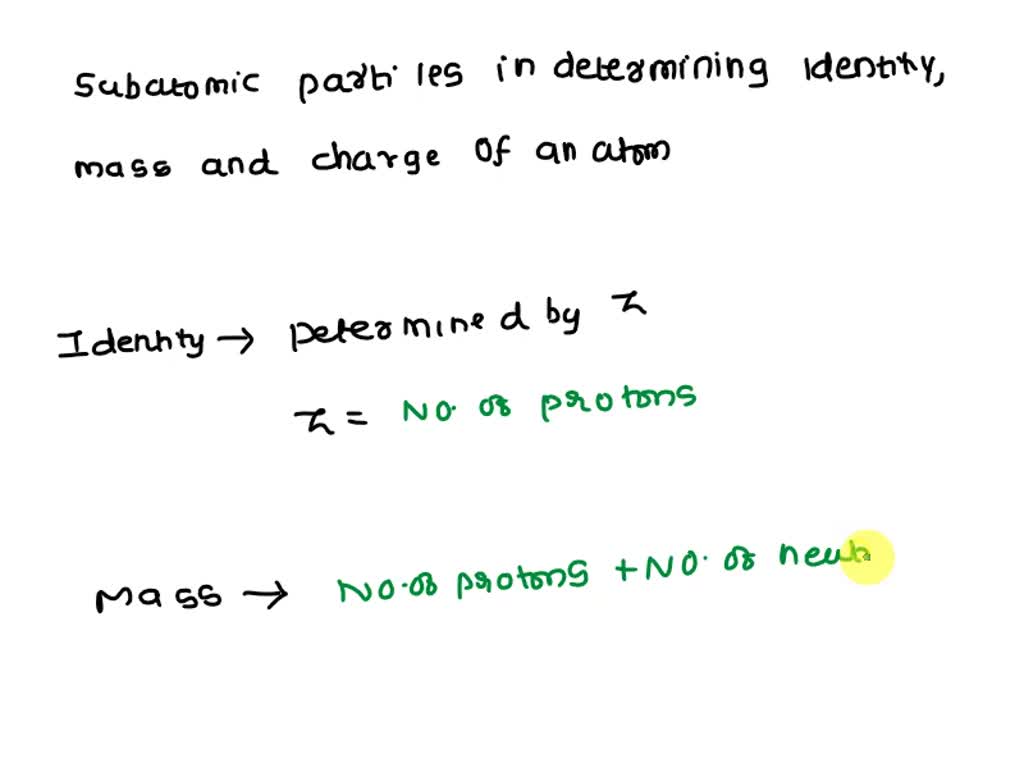 Subatomic parti les in determining Identity,
mass and charge of an atom
Identity → Determined by Z
Z = No. of protons
Mass → No. of protons + No. of neut